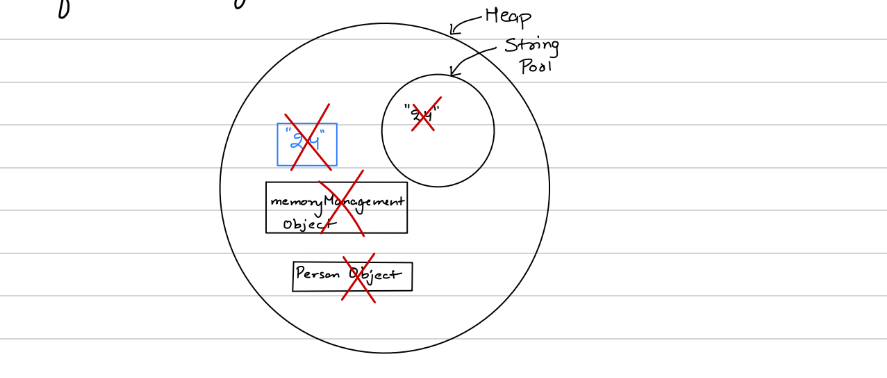 Heap
String
Pool
"24"
"24"
memoryManagement
Object
Person Object